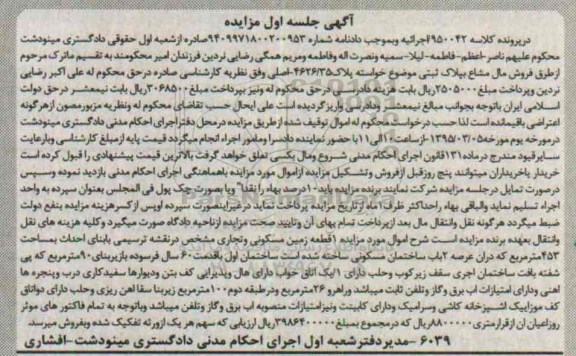 آگهی جلسه اول مزایده
درپرونده کلاسه ۹۵۰۰۴۲اجرائیه وبموجب دادنامه شماره ۹۴۰۹۹۷۱۸۰۰۲۰۰۹۵۳صادره ازشعبه اول حقوقی دادگستری مینودشت
محکوم علیهم ناصر-اعظم-فاطمه-لیلا-سمیه ونصرت اله وفاطمه ومریم همگی رضایی نردین فرزندان امیر محکومند به تقسیم ماترک مرحوم
ازطریق فروش مال مشاع بپلاک ثبتی موضوع خواسته پلاک۴۶۲۶/۳۵-اصلی وفق نظریه کارشناسی صادره درحق محکوم له علی اکبر رضایی
نردین وپرداخت مبلغ ۲۵۰۵۰۰۰ریال بابت هزینه دادرسی درحق محکوم له ونیز بپرداخت مبلغ ۳۰۶۸۵۰۰ریال بابت نیمعشر درحق دولت
اسلامی ایران باتوجه بجوانب مبالغ نیمعشر ودادرسی واریز گردیده است علی ایحال حسب تقاضای محکوم له ونظریه مزبورمصون ازهرگونه
اعتراضی باقیمانده است لذا حسب درخواست محکوم له اموال توقیف شده ازطریق مزایده درمحل دفتراجرای احکام مدنی دادگستری مینودشت
درمورخه یوم مورخه ۱۳۹۵/۰۳/۰۵-ازساعت۱۰الی۱۱با حضور نماینده دادسرا ومامور اجراء انجام میگردد قیمت پایه ازمبلغ کارشناسی وبارعایت
سایرقیود مندرج درماده۱۳۱قانون اجرای احکام مدنی شروع ومال بکسی تعلق خواهد گرفت بالاترین قیمت پیشنهادی را قبول کرده است
خریدار یاخریداران میتوانند پنج روزقبل ازفروش وتشکیل مزایده ازاموال مورد مزایده باهماهنگی اجرای احکام مدنی بازدید نموده وسپس
درصورت تمایل درجلسه مزایده شرکت نمایند برنده مزایده باید۱۰درصد بهاء را نقدا" ویا بصورت چک پول فی المجلس بعنوان سپرده به واحد
اجراء تسلیم نماید والباقی بهاء راحداکثر ظرف یکماه ازتاریخ مزایده پرداخت نماید درغیراینصورت سپرده اوپس ازکسرهزینه مزایده بنفع دولت
ضبط میگردد هرگونه نقل وانتقال مال بعد ازپرداخت تمام بهای آن وتایید صحت مزایده ازناحیه دادگاه صورت میگیرد وکلیه هزینه های نقل
وانتقال بعهده برنده مزایده است شرح اموال مورد مزایده ۱قطعه زمین مسکونی وتجاری مشخص درنقشه ترسیمی بابنای احداث بمساحت
۴۵۳مترمربع که دران عرصه ۲باب ساختمان مسکونی ساخته شده است ساختمان اول باقدمت ۶۰ سال فرسوده بازیربنای۹۰مترمربع که پی
شفته بافت ساختمان اجری سقف زیرکوب وحلب دارای ۱یک اتاق خواب دارای هال وپذیرایی کف بتن ودیوارها سفیدکاری درب وپنجره ها
اهنی ودارای امتیازات اب برق وگاز وتلفن ثابت میباشد وراهرو ۲۶مترمربع ودرطبقه دوم۱۰۰مترمربع زیربنا سقا اهن ریزی وحلب دارای دواتاق
کف موزاییک اشپزخانه کاشی وسرامیک ودارای کابینت ونیزامتیازات منصوبه اب برق و گاز وتلفن میباشد وباتوجه به تمام فاکتور های موثر
روزاعیان آن ازقرارمتری ۸۸۰۰۰۰۰ریال که درمجموع بمبلغ۳۹۸۶۴۰۰۰۰۰ریال ارزیابی که سهم هر یک ازورثه تفکیک شده وبفروش میرسد
۶۰۳۹ -مدیر دفترشعبه اول اجرای احکام مدنی دادگستری مینودشت-افشاری